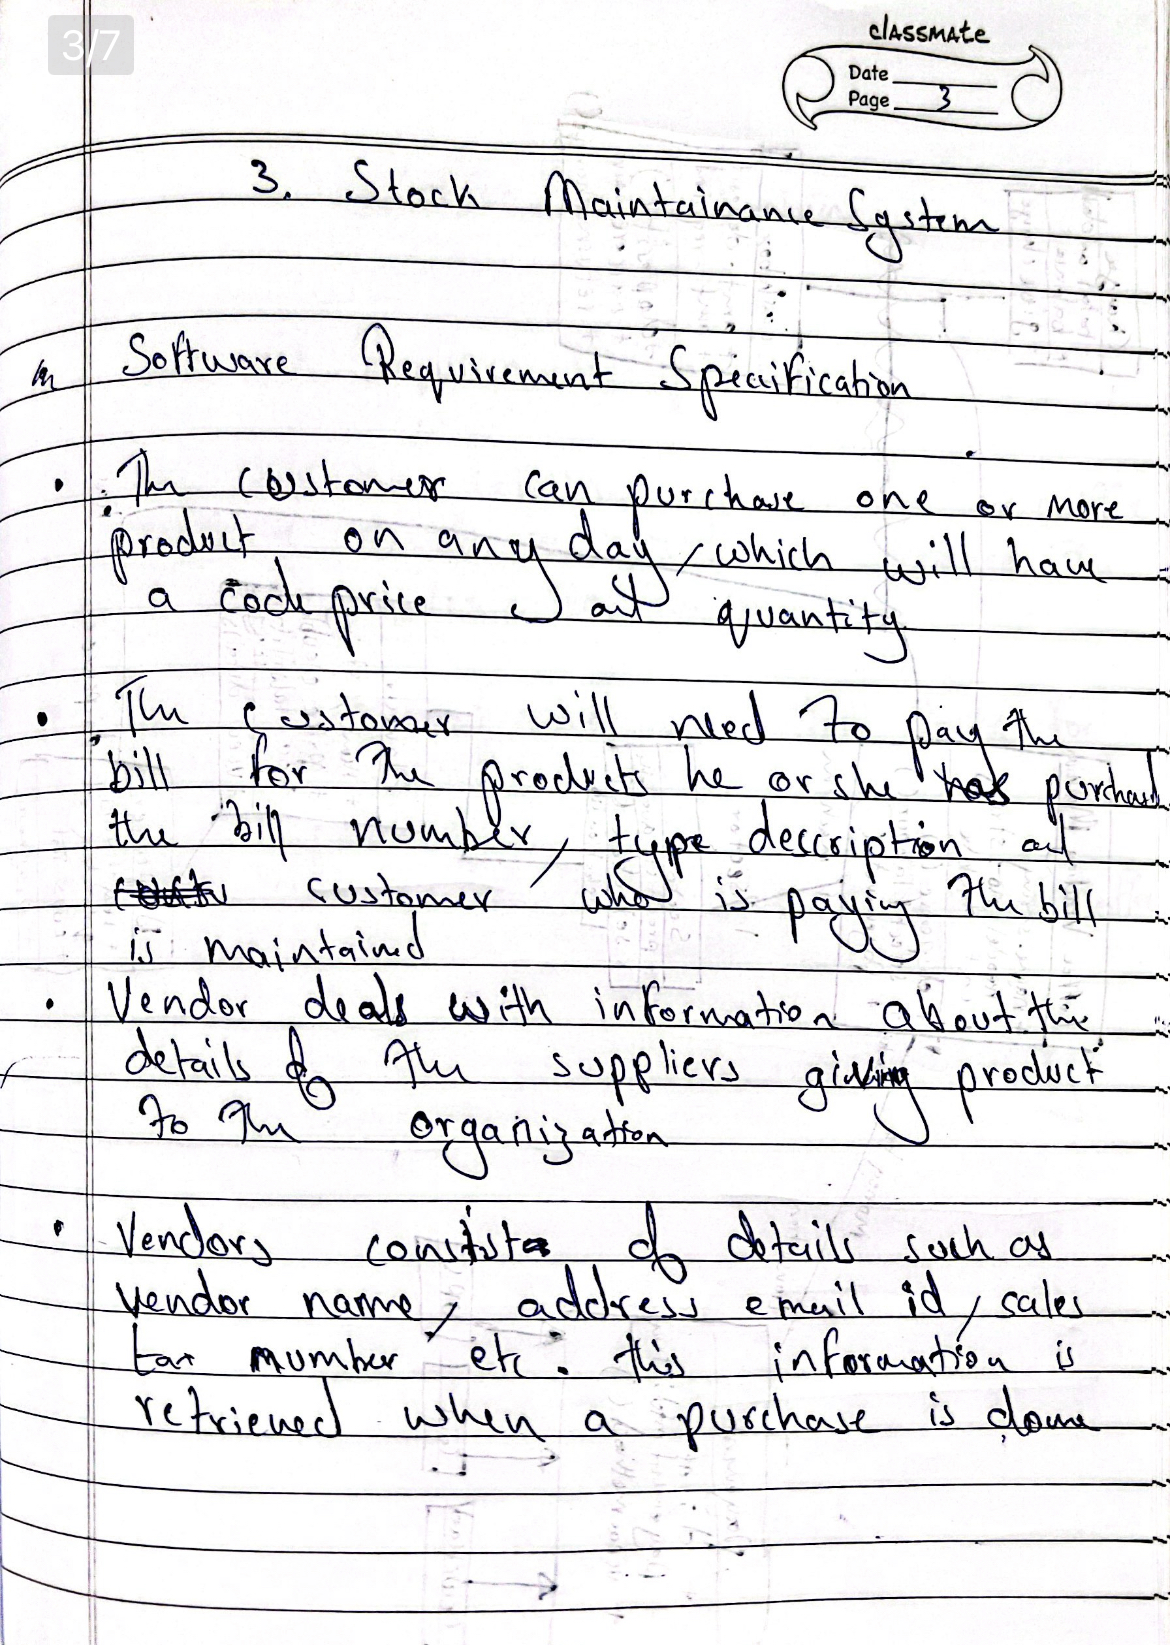 3/7
classmate
Date
Page 3
3. Stock Maintainance System
Software Requirement Specification
• The customer can purchase one or more
product on any day, which will have
a code price and quantity
• The customer will need to pay the
bill for the products he or she has purchased
the bill number, type description and
customer who is paying the bill
is maintained
• Vendor deals with information about the
details of the suppliers giving product
to the organization
• Vendors consists of details such as
vendor name, address email id, sales
tax number etc. this information is
retrieved when a purchase is done